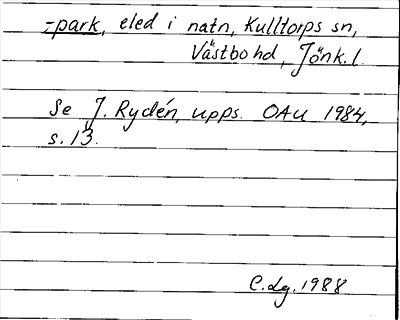 -park, eled i natn, Kulltorps sn,
Västbo hd, Jönk. l.
Se J. Rydén, upps. OAU 1984,
s. 13.
C. Lg. 1988